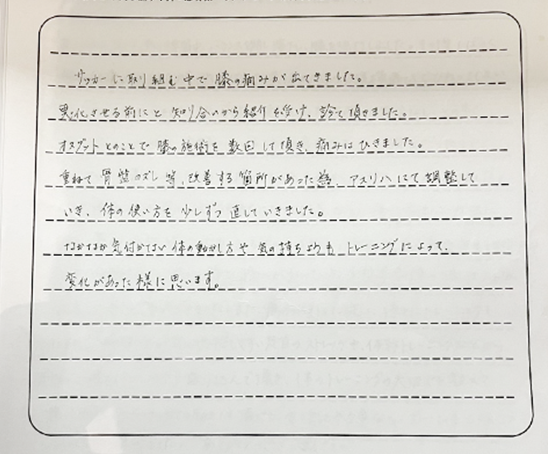 サッカーに取り組む中で膝の痛みが出てきました。
悪化させる前にと知り合いから紹介を受け、診て頂きました。
オスグットとのことで膝の施術を数回して頂き、痛みはひきました。
重ねて骨盤のズレ等、改善する箇所があった為、アスリハにて調整して
いき、体の使い方を少しずつ直していきました。
なかなか気付かない体の動かし方や気の持ちようも、トレーニングによって、
変化があった様に思います。